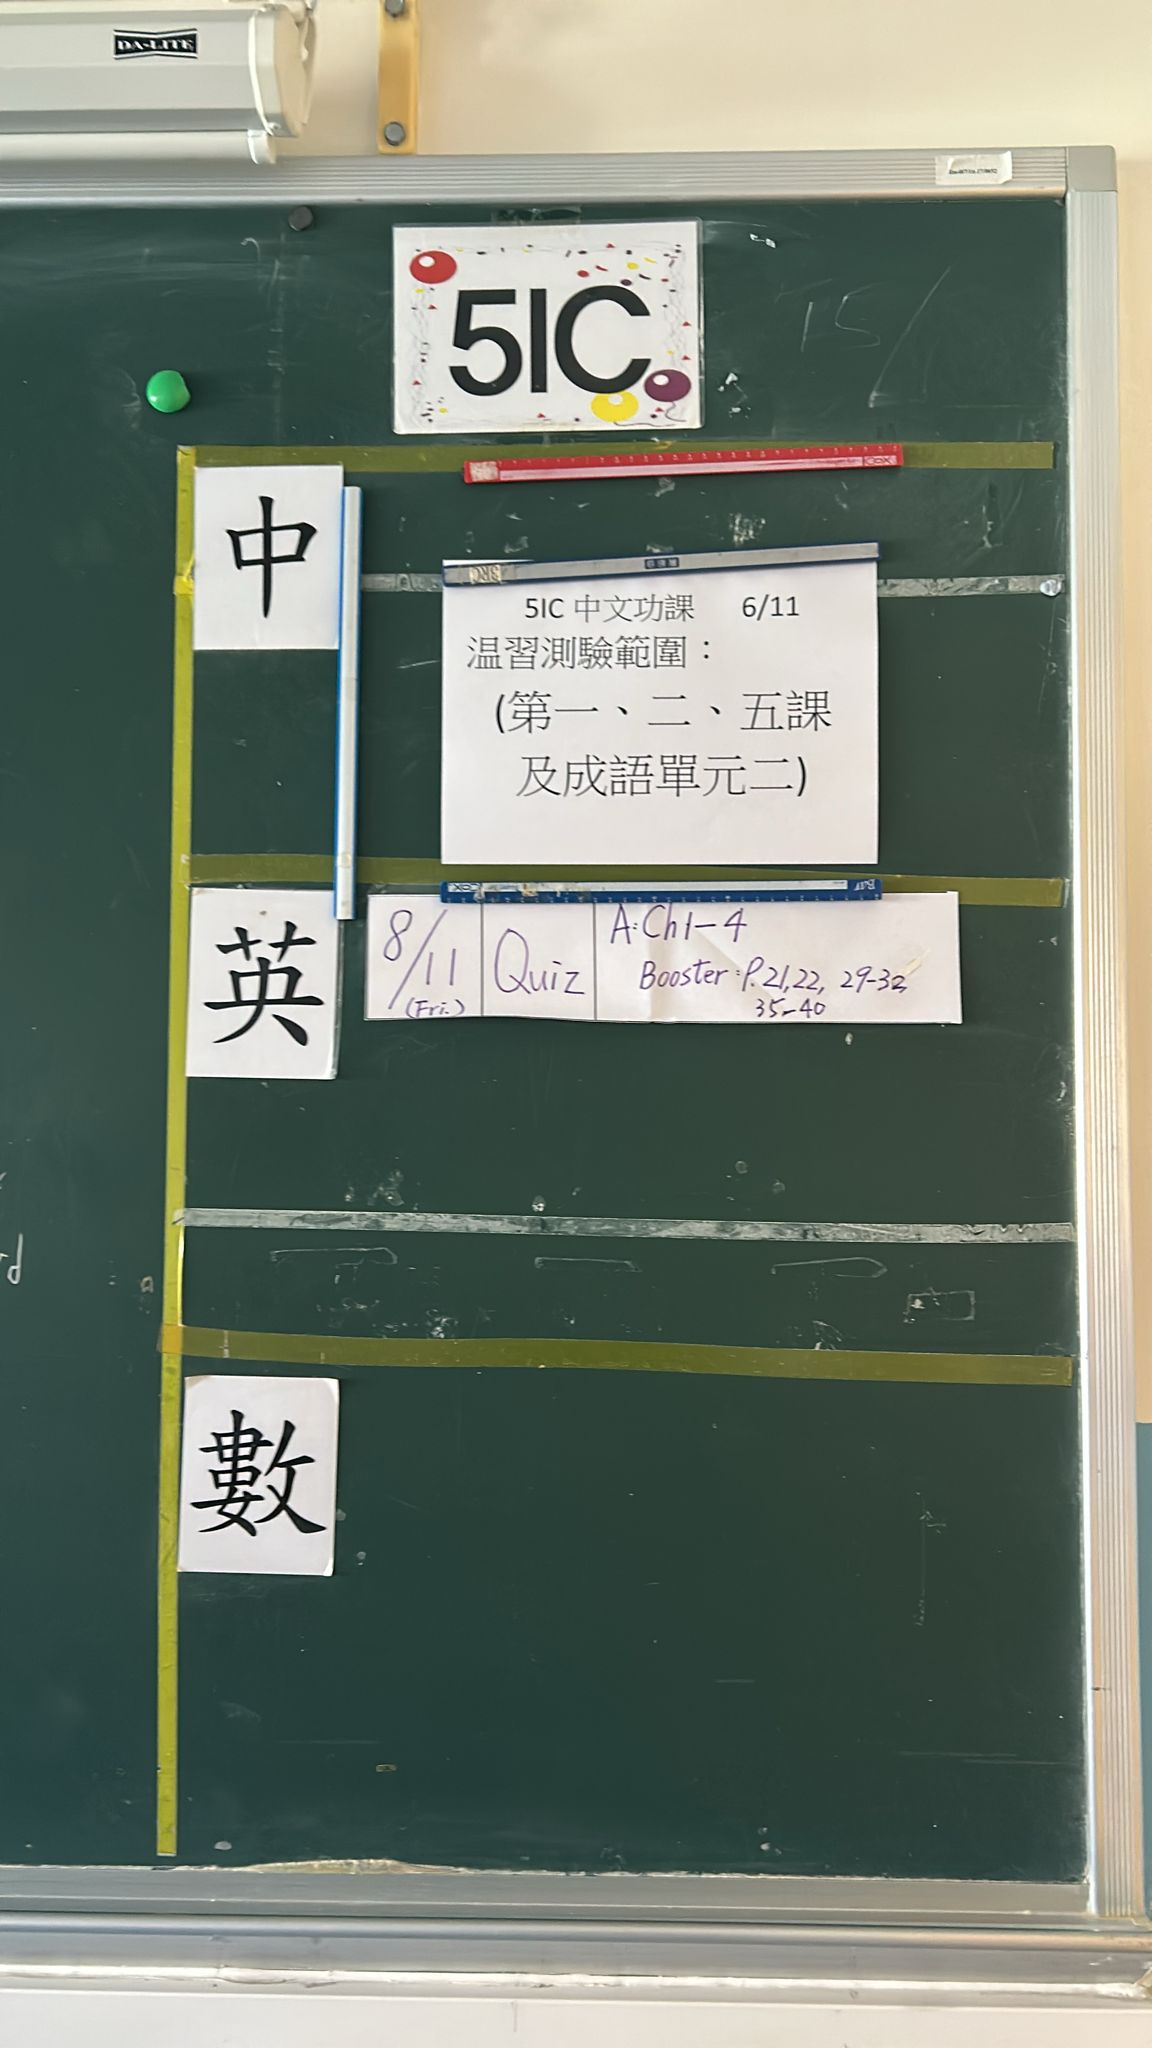 DA-LITE
5IC
中
5IC 中文功課 6/11
温習測驗範圍：
(第一、二、五課
及成語單元二)
英
8/11
(Fri.)
Quiz
A: Ch1-4
Booster: P.21,22, 29-32,
35-40
數